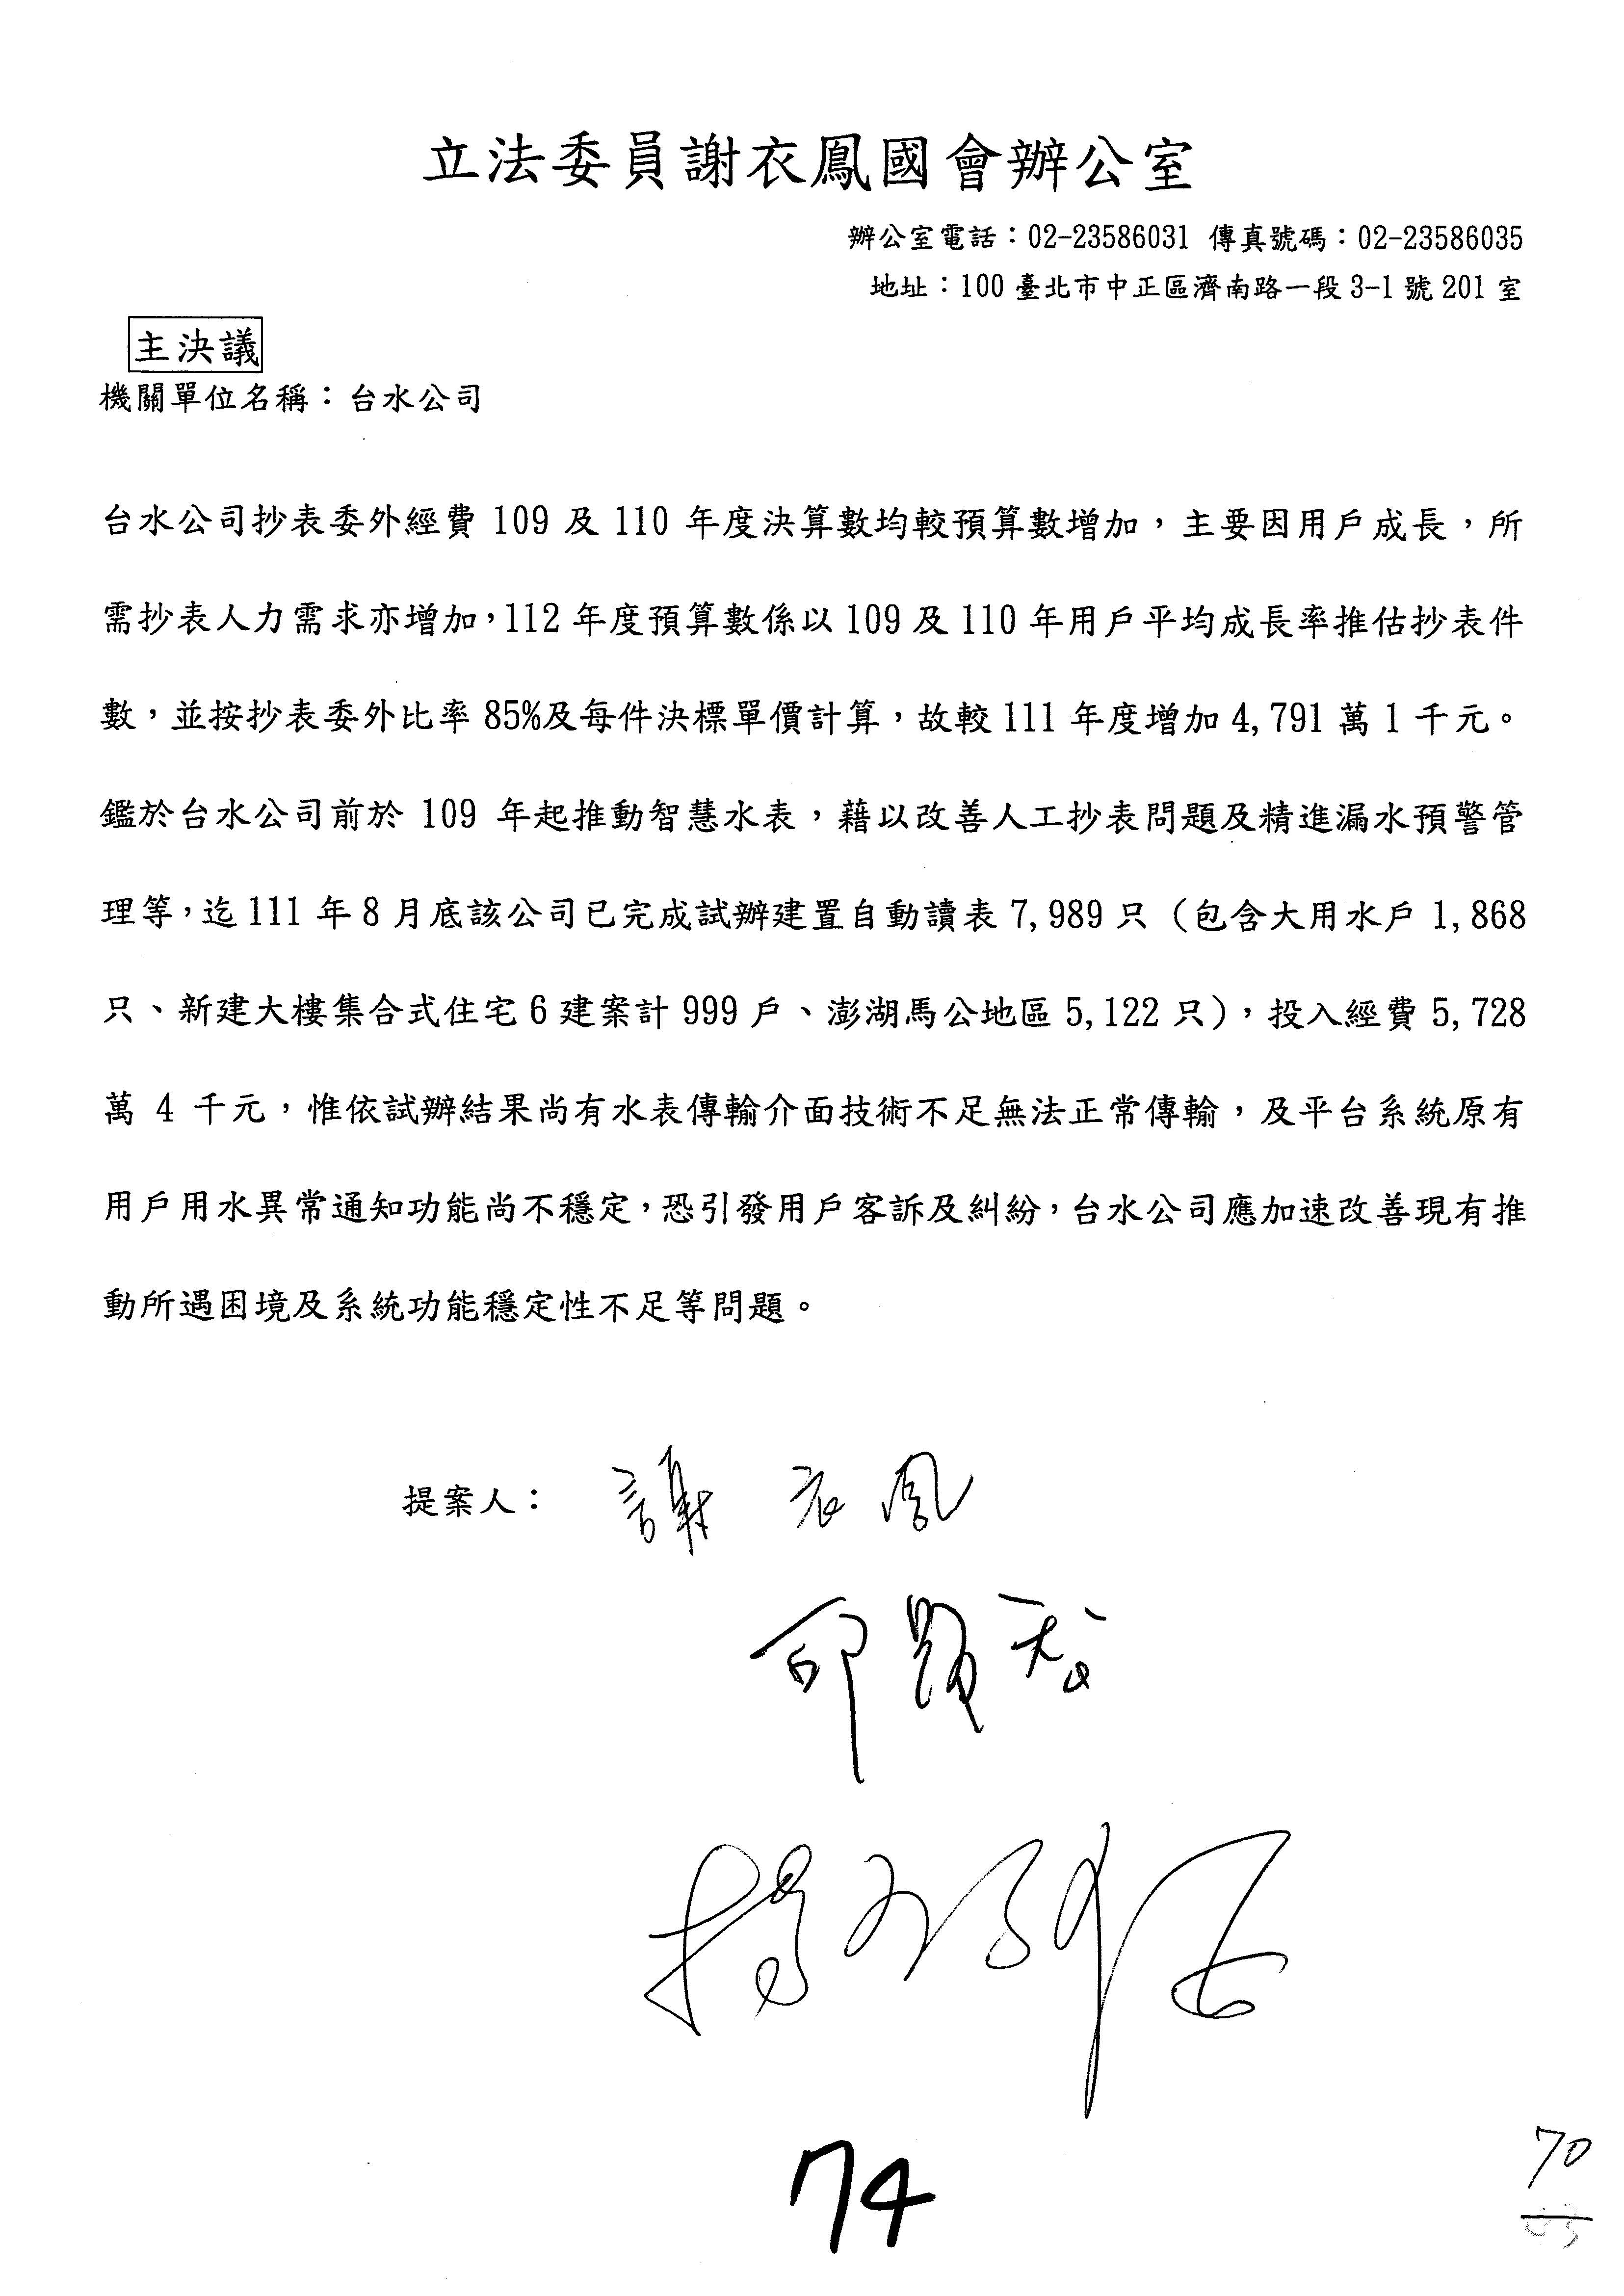 立法委員謝衣鳳國會辦公室
辦公室電話：02-23586031 傳真號碼：02-23586035
地址：100 臺北市中正區濟南路一段 3-1 號 201 室
主決議
機關單位名稱：台水公司
台水公司抄表委外經費 109 及 110 年度決算數均較預算數增加，主要因用戶成長，所
需抄表人力需求亦增加，112 年度預算數係以 109 及 110 年用戶平均成長率推估抄表件
數，並按抄表委外比率 85%及每件決標單價計算，故較 111 年度增加 4,791 萬 1 千元。
鑑於台水公司前於 109 年起推動智慧水表，藉以改善人工抄表問題及精進漏水預警管
理等，迄 111 年 8 月底該公司已完成試辦建置自動讀表 7,989 只（包含大用水戶 1,868
只、新建大樓集合式住宅 6 建案計 999 戶、澎湖馬公地區 5,122 只），投入經費 5,728
萬 4 千元，惟依試辦結果尚有水表傳輸介面技術不足無法正常傳輸，及平台系統原有
用戶用水異常通知功能尚不穩定，恐引發用戶客訴及糾紛，台水公司應加速改善現有推
動所遇困境及系統功能穩定性不足等問題。
提案人： 謝衣鳳
74
70